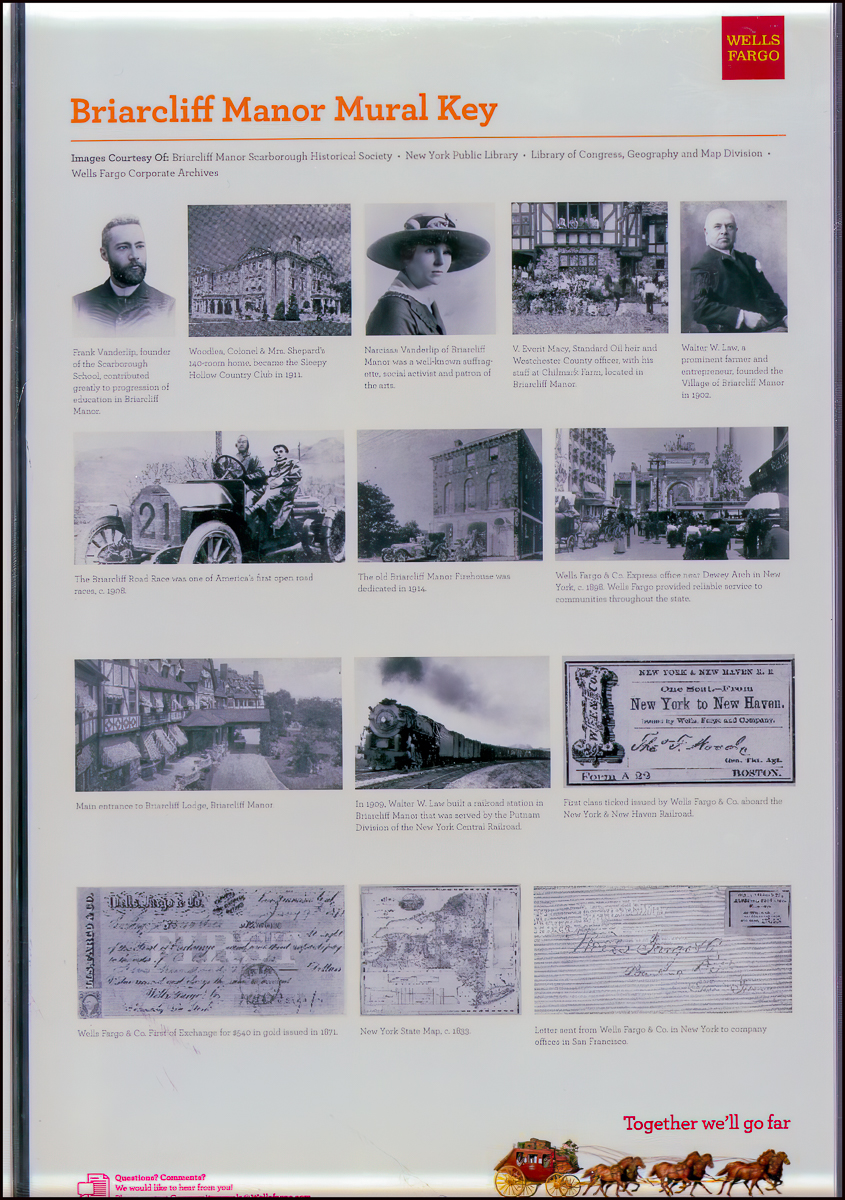 WELLS
FARGO
Briarcliff Manor Mural Key
Images Courtesy Of: Briarcliff Manor Scarborough Historical Society • New York Public Library • Library of Congress, Geography and Map Division •
Wells Fargo Corporate Archives
Frank Vanderlip, founder
of the Scarborough
School, contributed
greatly to progression of
education in Briarcliff
Manor.
Woodlea, Colonel & Mrs. Shepard's
140-room home, became the Sleepy
Hollow Country Club in 1911.
Narcissa Vanderlip of Briarcliff
Manor was a well-known suffrag-
ette, social activist and patron of
the arts.
V. Everit Macy, Standard Oil heir and
Westchester County officer, with his
staff at Chilmark Farm, located in
Briarcliff Manor.
Walter W. Law, a
prominent farmer and
entrepreneur, founded the
Village of Briarcliff Manor
in 1902.
21
The Briarcliff Road Race was one of America's first open road
races, c. 1908.
The old Briarcliff Manor Firehouse was
dedicated in 1914.
Wells Fargo & Co. Express office near Dewey Arch in New
York, c. 1898. Wells Fargo provided reliable service to
communities throughout the state.
Main entrance to Briarcliff Lodge, Briarcliff Manor
In 1909, Walter W. Law built a railroad station in
Briarcliff Manor that was served by the Putnam
Division of the New York Central Railroad.
NEW YORK & NEW HAVEN R. R.
One Seat.—From
New York to New Haven.
Issued by Wells, Fargo and Company.
Gen. Tkt. Agt.
Form A 22
BOSTON.
First class ticked issued by Wells Fargo & Co. aboard the
New York & New Haven Railroad.
WELLS FARGO & CO.
Wells, Fargo & Co.
Wells Fargo & Co. First of Exchange for $540 in gold issued in 1871.
New York State Map, c. 1833.
Wells Fargo & Co
Letter sent from Wells Fargo & Co. in New York to company
offices in San Francisco.
Together we'll go far
Questions? Comments?
We would like to hear from you!